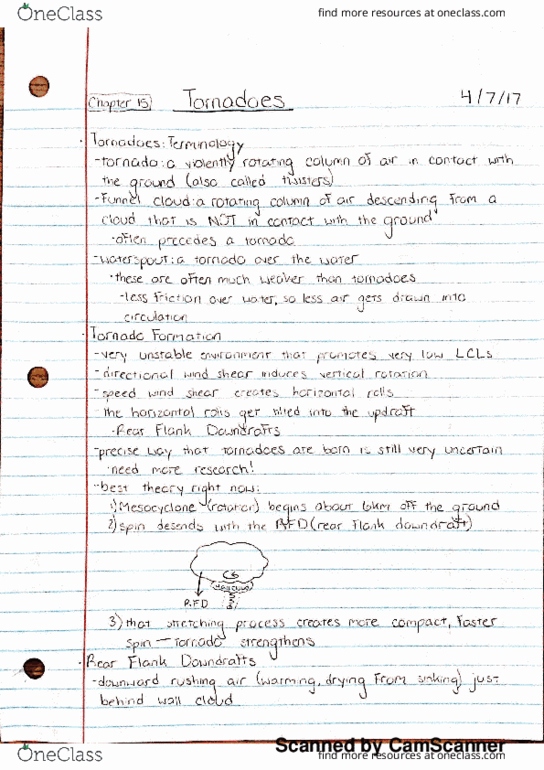 OneClass
find more resources at oneclass.com
Chapter 15
Tornadoes
4/7/17
· Tornadoes: Terminology
-tornado: a violently rotating column of air in contact with
the ground (also called twisters)
-Funnel cloud: a rotating column of air descending from a
cloud that is NOT in contact with the ground
·often precedes a tornado
-waterspout: a tornado over the water
·these are often much weaker than tornadoes
-less friction over water, so less air gets drawn into
circulation
· Tornado Formation
-very unstable environment that promotes very low LCLs
-directional wind shear induces vertical rotation
-speed wind shear creates horizontal rolls
-the horizontal rolls get tilted into the updraft
·Rear Flank Downdrafts
-precise way that tornadoes are born is still very uncertain
·need more research!
-best theory right now:
1) Mesocyclone (rotator) begins about 6km off the ground
2) spin desends with the RFD (rear flank downdraft)
wall cloud
RFD
3) that stretching process creates more compact, faster
spin — tornado strengthens
· Rear Flank Downdrafts
-downward rushing air (warming, drying from sinking) just
behind wall cloud
Scanned by CamScanner
OneClass
find more resources at oneclass.com